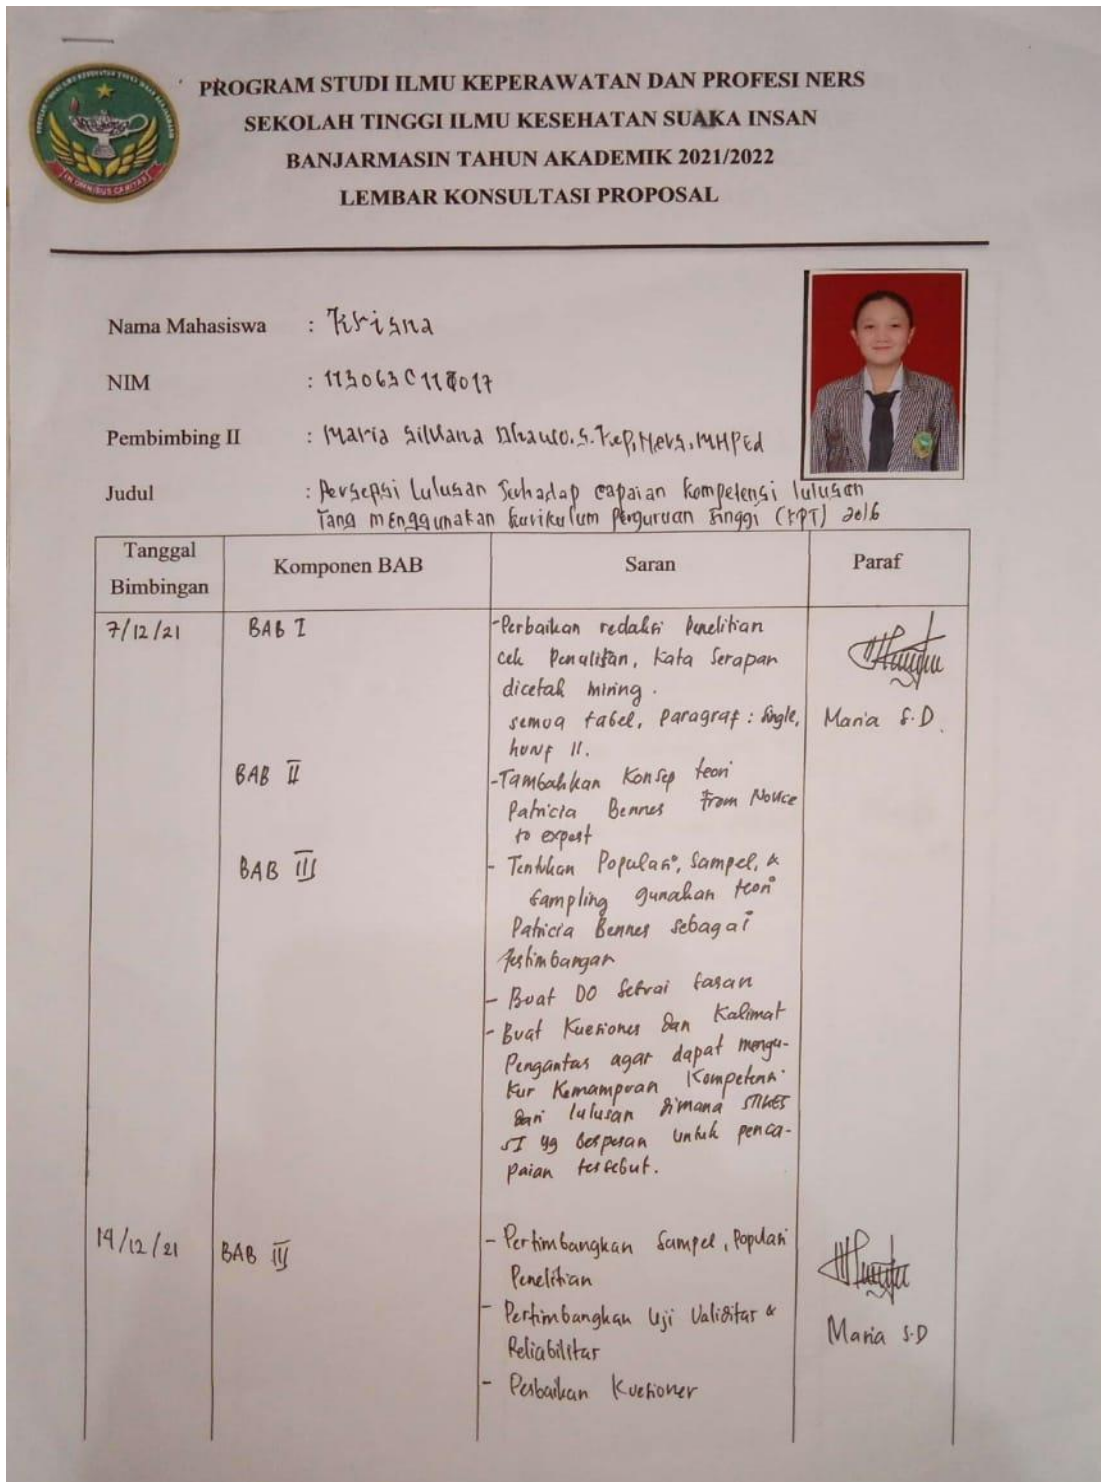 PROGRAM STUDI ILMU KEPERAWATAN DAN PROFESI NERS
SEKOLAH TINGGI ILMU KESEHATAN SUAKA INSAN
BANJARMASIN TAHUN AKADEMIK 2021/2022
LEMBAR KONSULTASI PROPOSAL
IN OMNIBUS CARITAS
Nama Mahasiswa : Krisna
NIM :
Pembimbing II : Maria Silvana
Judul : Persepsi Lulusan Terhadap capaian kompetensi lulusan
Yang menggunakan kurikulum Perguruan Tinggi (KPT) 2016
Tanggal Bimbingan
Komponen BAB
Saran
Paraf
7/12/21
BAB I
-Perbaikan redaksi Penelitian
cek Penulisan, kata Serapan
dicetak miring.
semua tabel, Paragraf : Single,
huruf 11.
Maria S.D.
BAB II
-Tambahkan Konsep teori
Patricia Benner From Novice
to expert
BAB III
- Tentukan Populasi, Sampel, &
Sampling gunakan teori
Patricia Benner sebagai
Pertimbangan
- Buat DO Sesuai Saran
- Buat Kuesioner dan Kalimat
Pengantar agar dapat mengu-
kur Kemampuan Kompetensi
dari lulusan dimana STIKES
SI yg berperan untuk penca-
paian tersebut.
14/12/21
BAB III
- Pertimbangkan Sampel, Populasi
Penelitian
- Pertimbangkan Uji Validitas &
Reliabilitas
- Perbaikan Kuesioner
Maria S.D